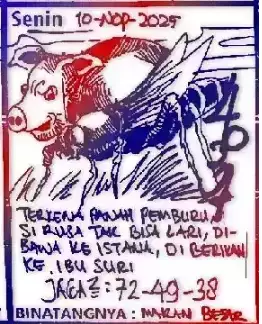 Senin 10-NOP-2025
TERKENA PANAH PEMBURU,
SI RUSA TAK BISA LARI, DI-
BAWA KE ISTANA, DI BERIKAN
KE IBU SURI
JAGA²: 72-49-38
BINATANGNYA: MAKAN BESAR